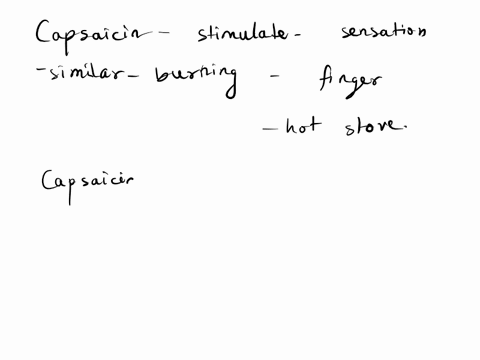 Capsaicin - stimulate - sensation
- similar - burning - finger
- hot stove.
Capsaicin